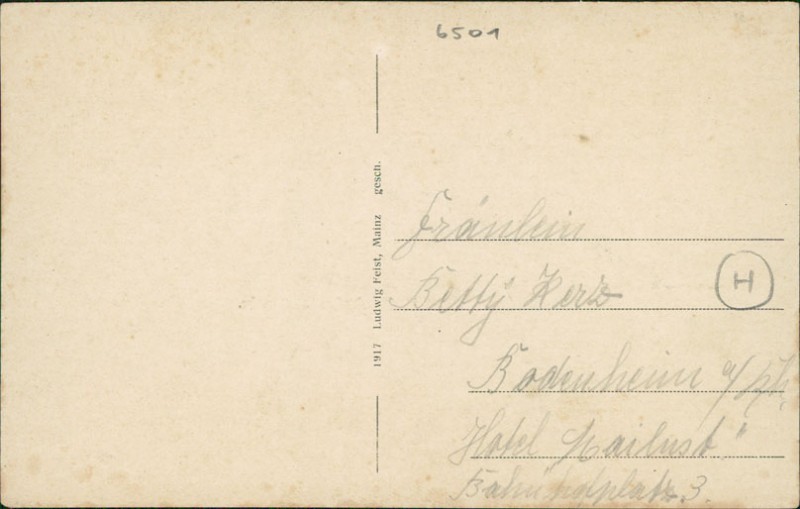 6501
1917 Ludwig Feist, Mainz gesch.
Fräulein
Betty Herz
H
Bodenheim a/Rh.
Hotel „Mailust“
Bahnhofplatz 3.